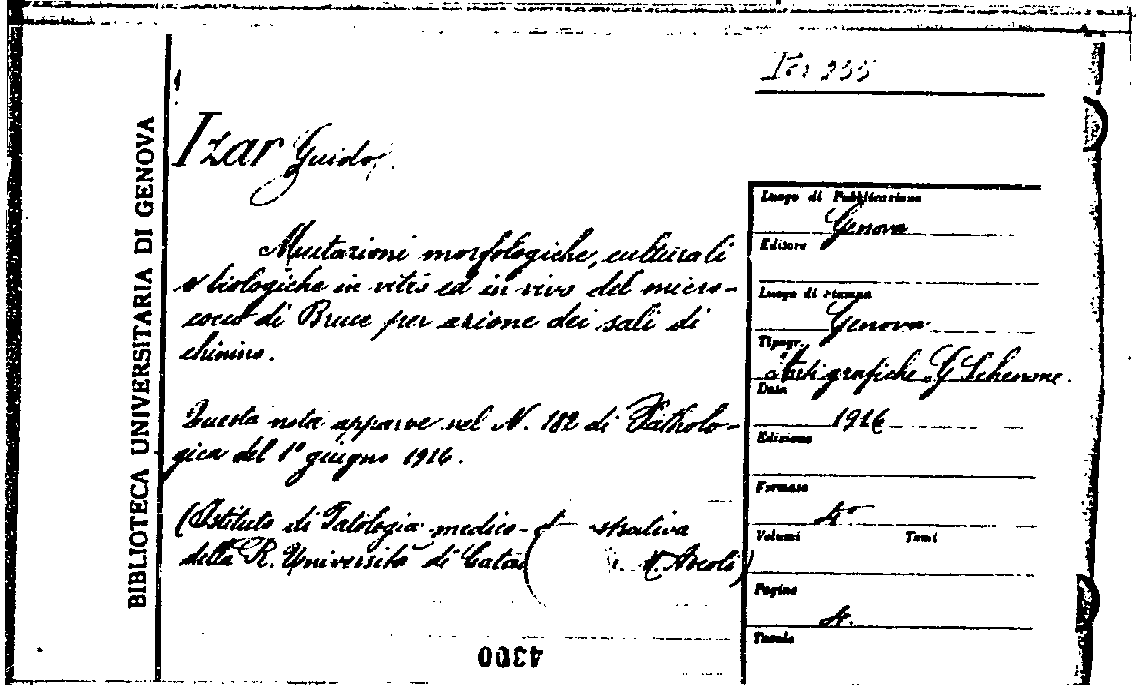 BIBLIOTECA UNIVERSITARIA DI GENOVA
Izar Guido
Mutazioni morfologiche, culturali
e biologiche in vitro ed in vivo del micro-
cocco di Bruce per azione dei sali di
chinino.
Questa nota apparve nel N. 182 di Patholo-
gica del 1° giugno 1916.
(Istituto di Patologia medico- strativa
della R. Università di Cata M. Ascoli)
4300
Luogo di Pubblicazione
Genova
Editore
Luogo di stampa
Genova
Tipogr.
Arti grafiche G Schenone.
Data
1916
Edizione
Formato
4°
Volumi Tomi
Pagine
4.
Tavole